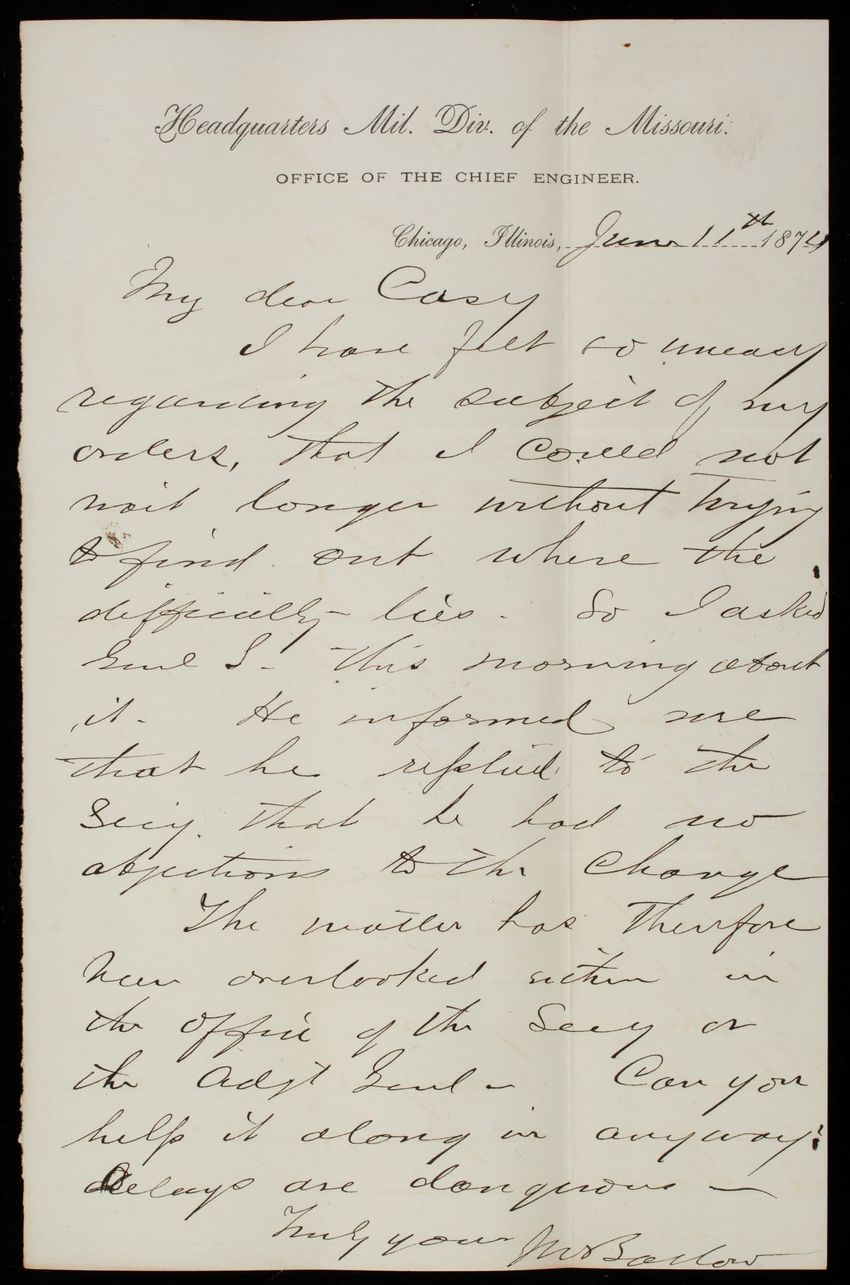 Headquarters Mil. Div. of the Missouri.
OFFICE OF THE CHIEF ENGINEER.
Chicago, Illinois, June 11th 1874
My dear Casey
I have felt so uneasy
regarding the subject of my
orders, that I could not
wait longer without trying
to find out where the
difficulty lies. So I asked
Genl S. this morning about
it. He informed me
that he replied to the
Secy. that he had no
objections to the change
The matter has therefore
been overlooked either in
the office of the Secy or
the Adjt Genl - Can you
help it along in anyway?
Delays are dangerous —
Truly yours JW Barlow